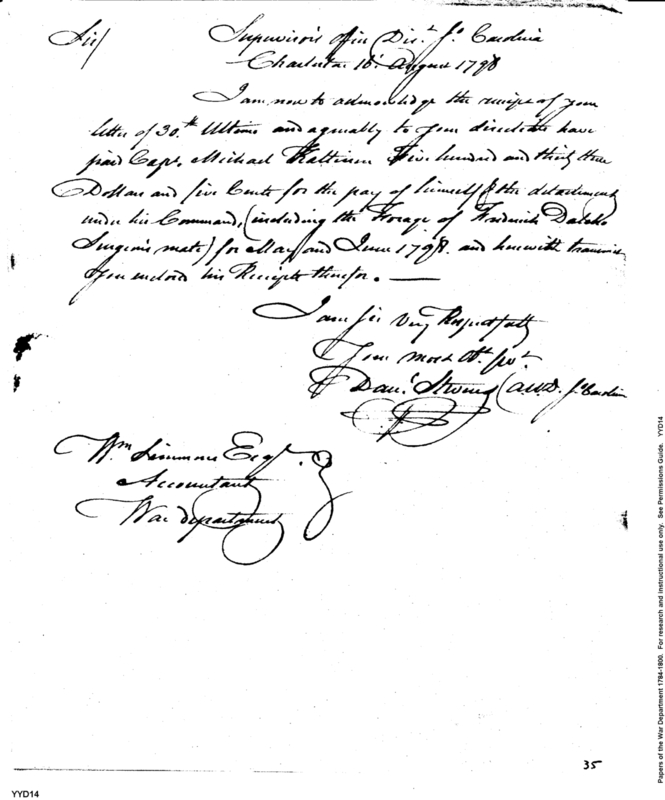 Sir/ Supervisor's Office Dist. So. Carolina
Charleston 16. August 1798
I am now to acknowledge the receipt of your
letter of 30.th Ultimo and agreeably to your directions have
paid Capt. Michael Kalteisen Five hundred and thirty three
Dollars and five Cents for the pay of himself & the detachment
under his Command, (including the Forage of Frederick Dalcho
Surgeon's mate) for May and June 1798. and herewith transmit
you enclosed his Receipts therefor. —
I am Sir Very Respectfully
Your most Ob. Sert.
Danl. Stevens
So. Carolina
Wm. Simmons Esqr.
Accountant
War department
35
YYD14
Papers of the War Department 1784-1800. For research and instructional use only. See Permissions Guide. YYD14